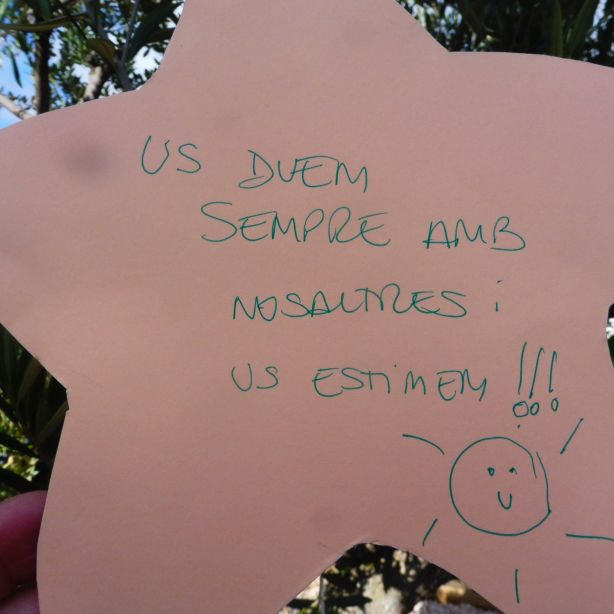 US DUEM
SEMPRE AMB
NOSALTRES i
US ESTiMEM !!!